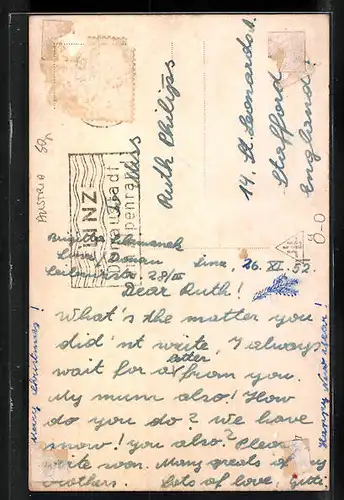 AUSTRIA
Miss
Ruth Philipps
14, St. Leonards A.
Stafford
England!
LINZ
Donaustadt
Alpenrand
Brigitte
Linz / Donau
28/III
Linz, 26. XI. 52.
Dear Ruth!
What's the matter you
did'nt write, I always
wait for a letter from you.
My mum also! How
do you do? We have
snow! you also? Please
write soon. Many greats of my
brothers. Lots of love, Gitti
Merry Christmas!
Happy New Year!
Ö-O